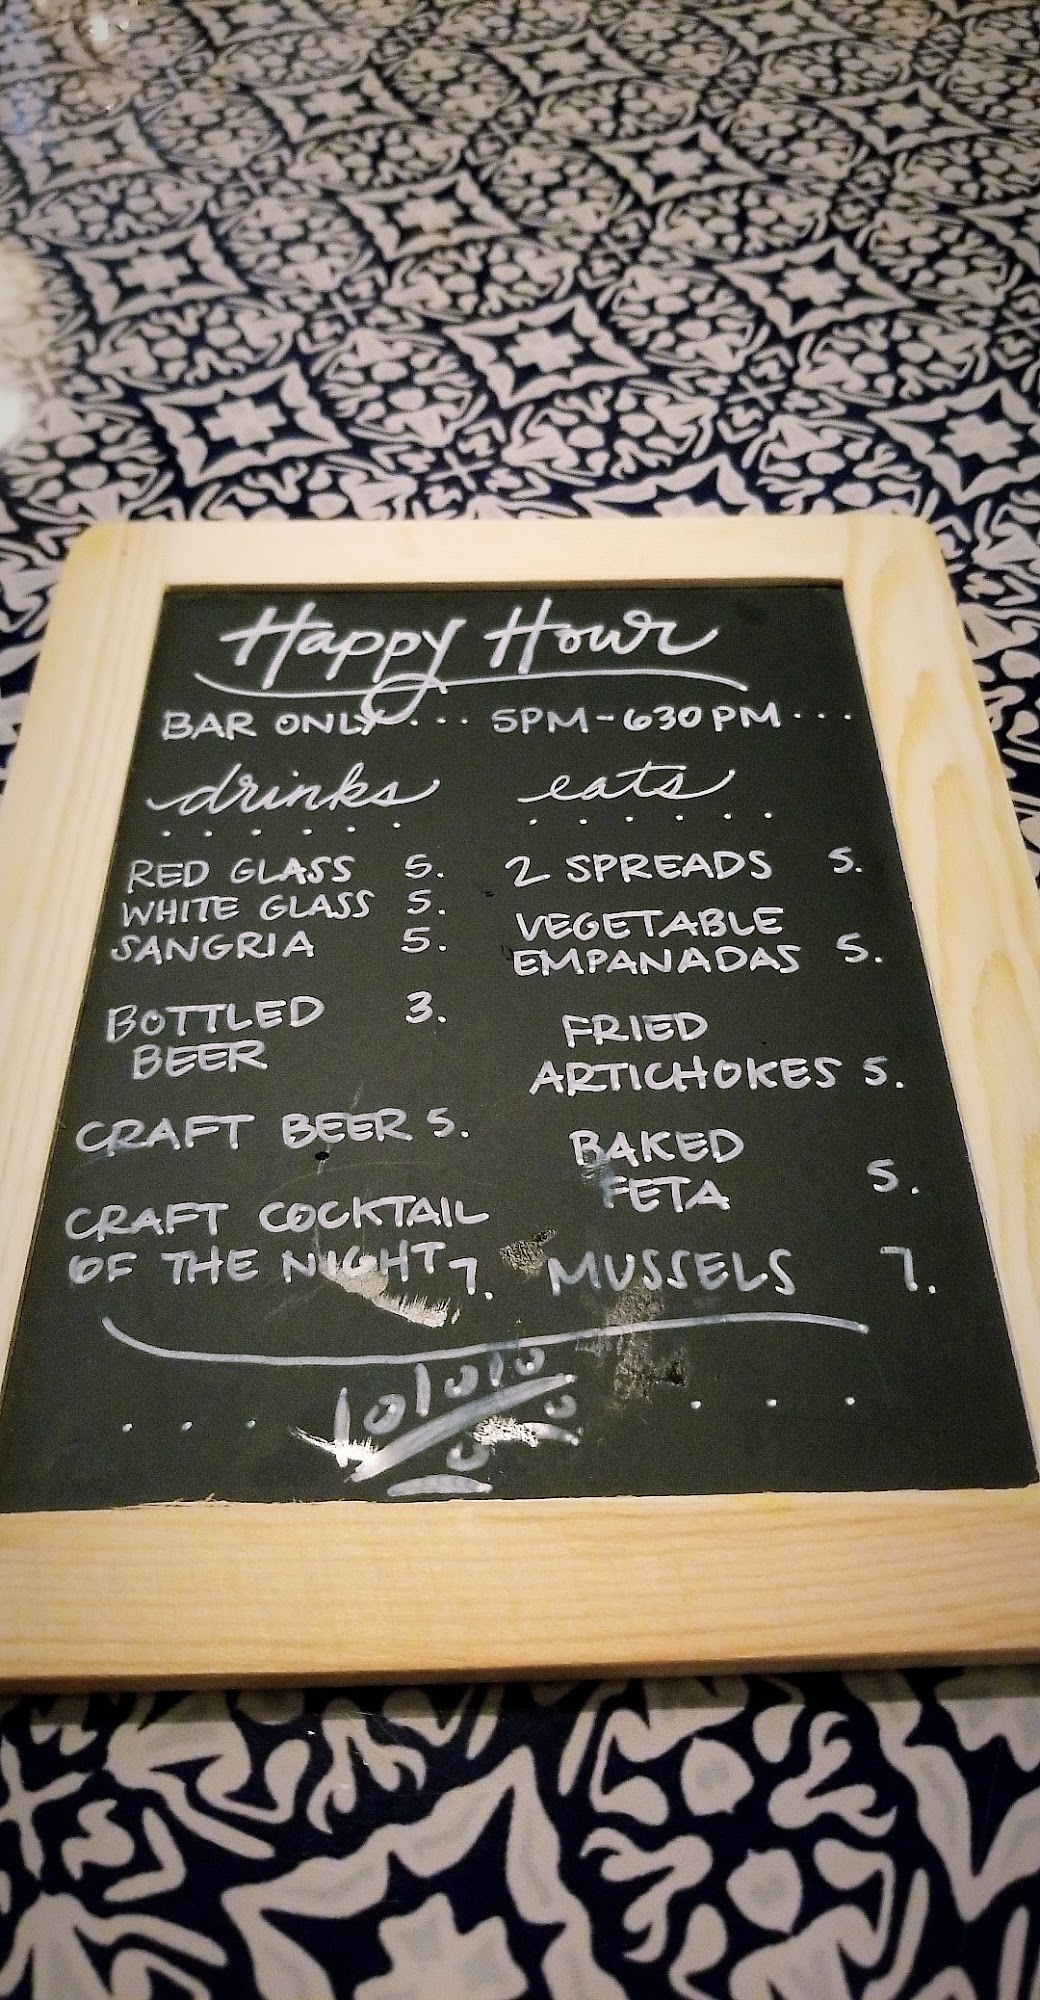 Happy Hour
BAR ONLY... 5PM-630PM...
drinks
RED GLASS 5.
WHITE GLASS 5.
SANGRIA 5.
BOTTLED 3.
BEER
CRAFT BEER 5.
CRAFT COCKTAIL
OF THE NIGHT 7.
eats
2 SPREADS 5.
VEGETABLE
EMPANADAS 5.
FRIED
ARTICHOKES 5.
BAKED
FETA 5.
MUSSELS 7.